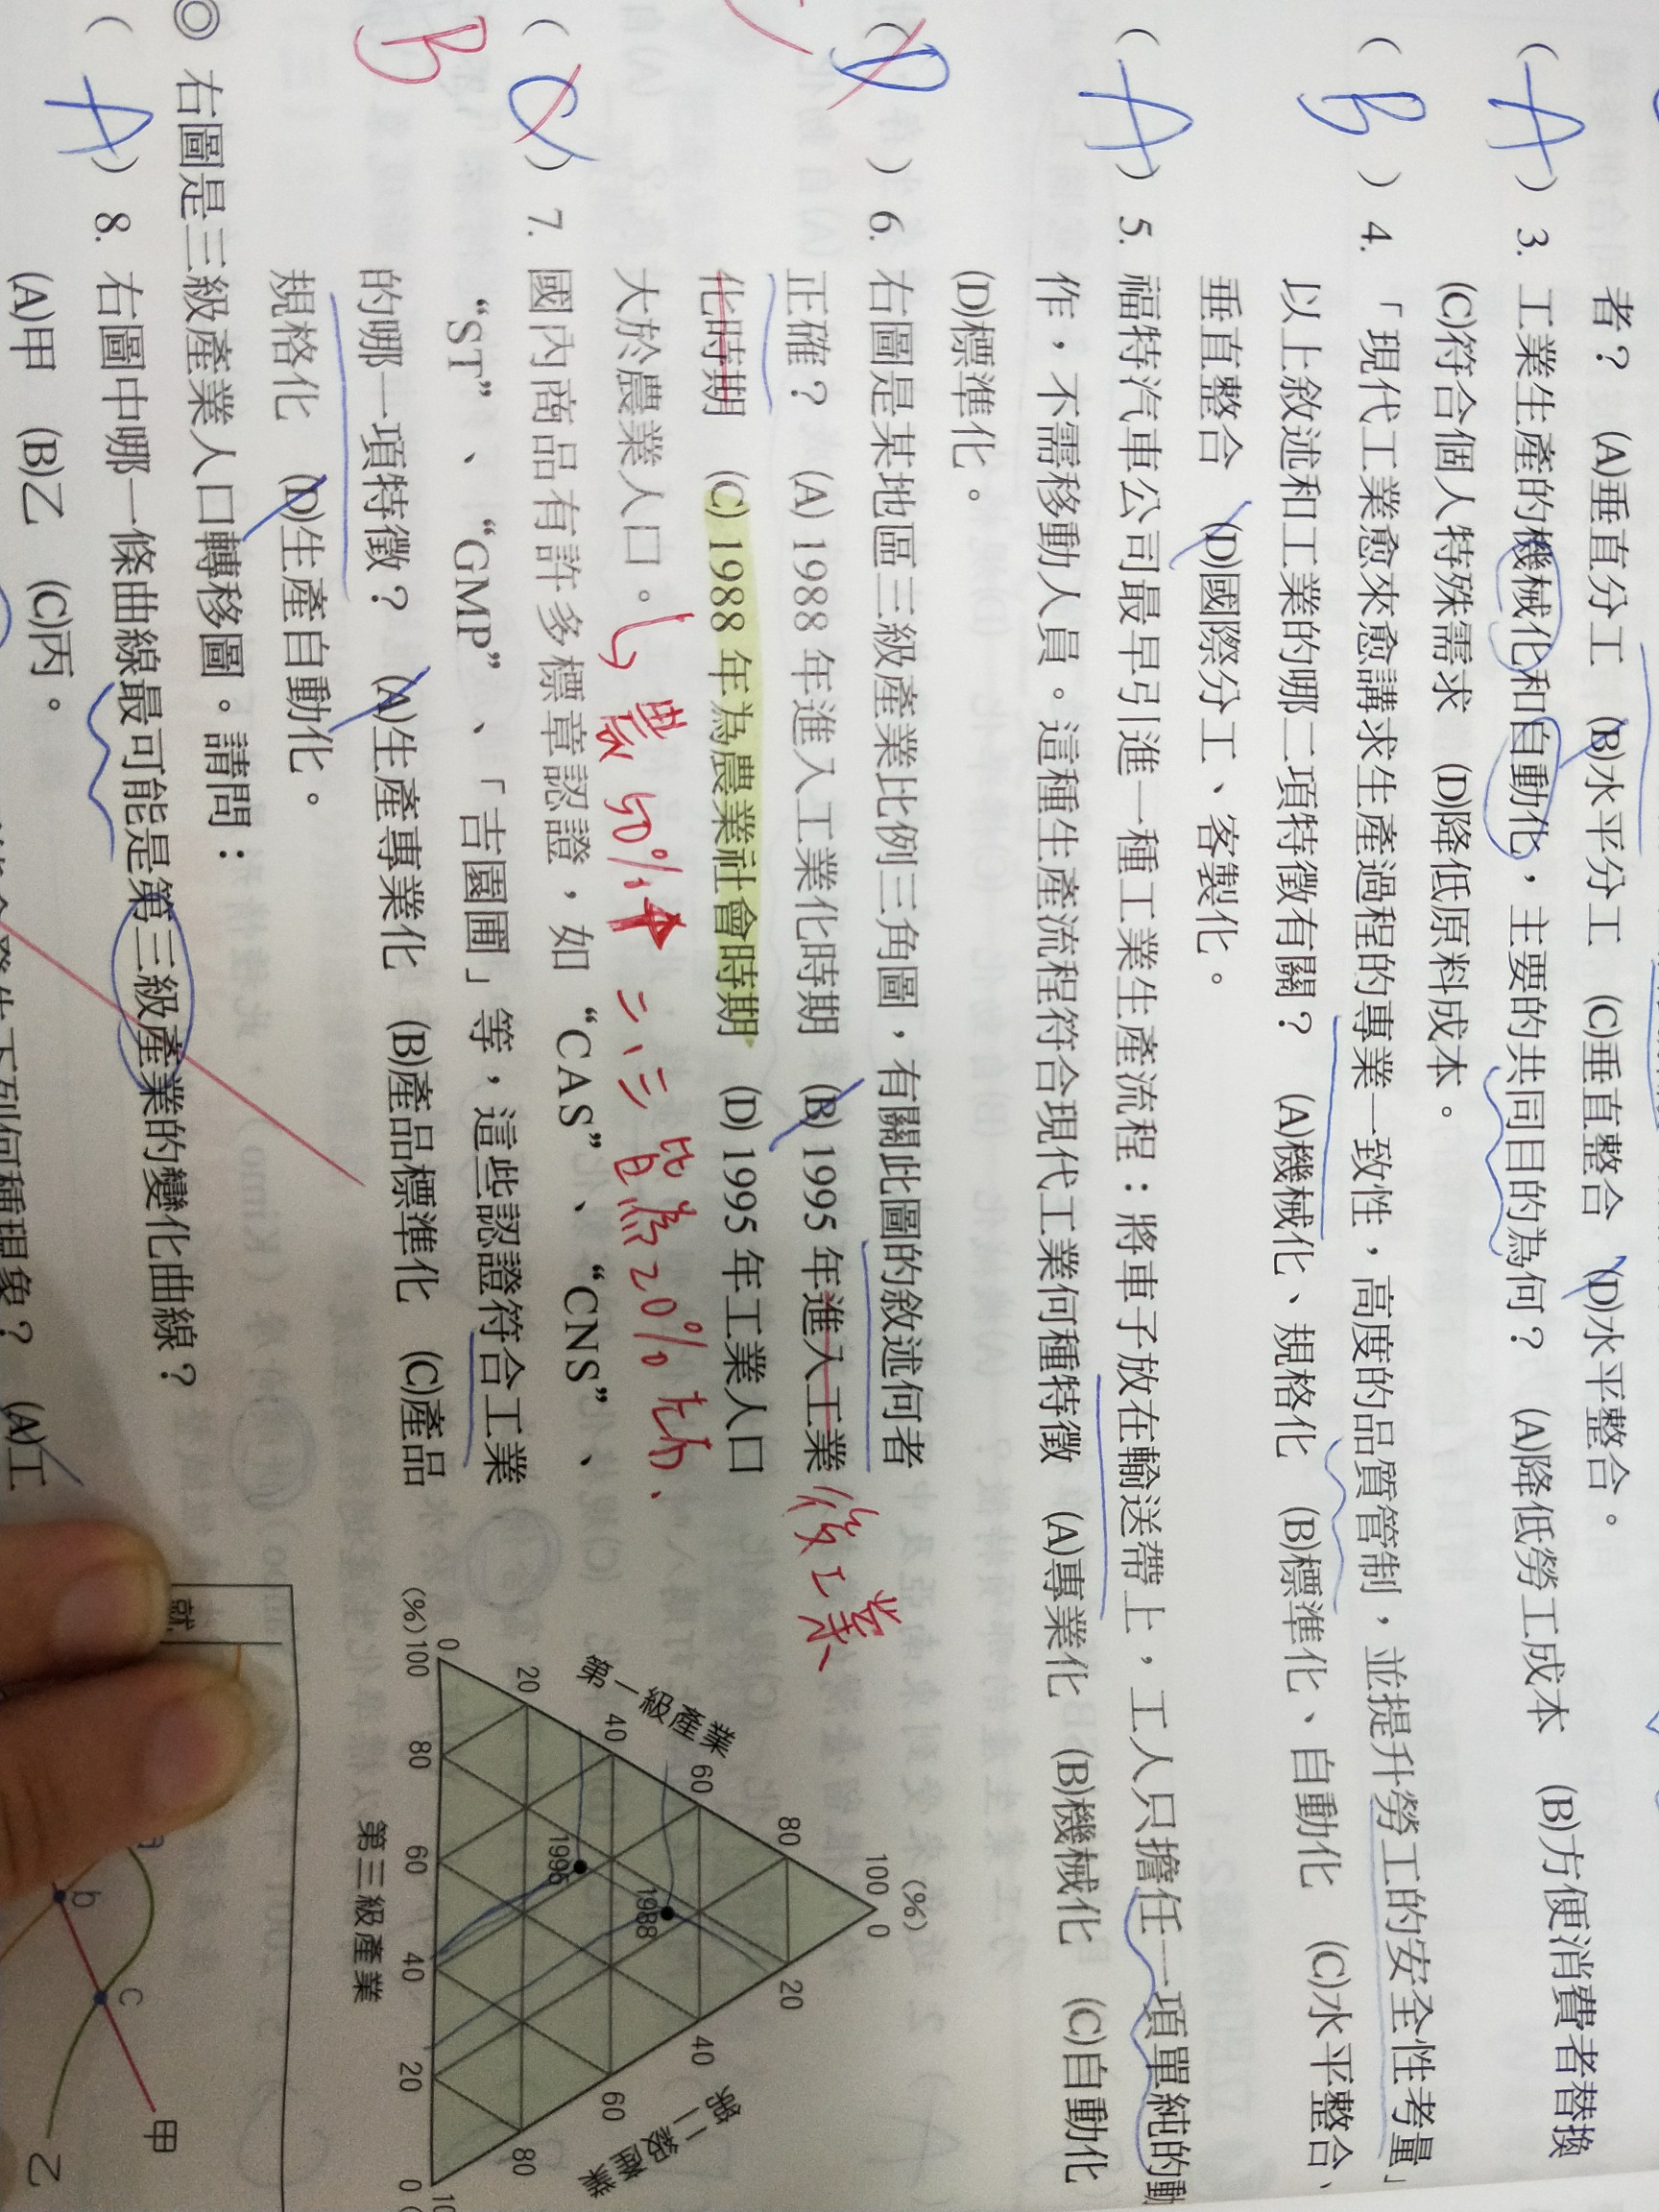 者？ (A)垂直分工 (B)水平分工 (C)垂直整合 (D)水平整合。
( A ) 3. 工業生產的機械化和自動化，主要的共同目的為何？ (A)降低勞工成本 (B)方便消費者替換
(C)符合個人特殊需求 (D)降低原料成本。
( B ) 4. 「現代工業愈來愈講求生產過程的專業一致性，高度的品質管制，並提升勞工的安全性考量」
以上敘述和工業的哪二項特徵有關？ (A)機械化、規格化 (B)標準化、自動化 (C)水平整合、
垂直整合 (D)國際分工、客製化。
( A ) 5. 福特汽車公司最早引進一種工業生產流程：將車子放在輸送帶上，工人只擔任一項單純的動
作，不需移動人員。這種生產流程符合現代工業何種特徵 (A)專業化 (B)機械化 (C)自動化
(D)標準化。
( D ) 6. 右圖是某地區三級產業比例三角圖，有關此圖的敘述何者
正確？ (A) 1988 年進入工業化時期 (B) 1995 年進入工業 後工業
化時期 (C) 1988 年為農業社會時期 (D) 1995 年工業人口
大於農業人口。 農 50%↑ 二、三 皆為 20% 右
( C ) 7. 國內商品有許多標章認證，如 “CAS”、“CNS”、
B “ST”、“GMP”、「吉園圃」等，這些認證符合工業
的哪一項特徵？ (A)生產專業化 (B)產品標準化 (C)產品
規格化 (D)生產自動化。
◎ 右圖是三級產業人口轉移圖。請問：
( A ) 8. 右圖中哪一條曲線最可能是第三級產業的變化曲線？
(A)甲 (B)乙 (C)丙。
下列何種現象？ (A)工
(%)
100 0
第一級產業
80 20
60 40
1988
40 60
1995
第二級產業
20 80
0
(%) 100 80 60 40 20 0
第三級產業
就
b
c
甲
乙